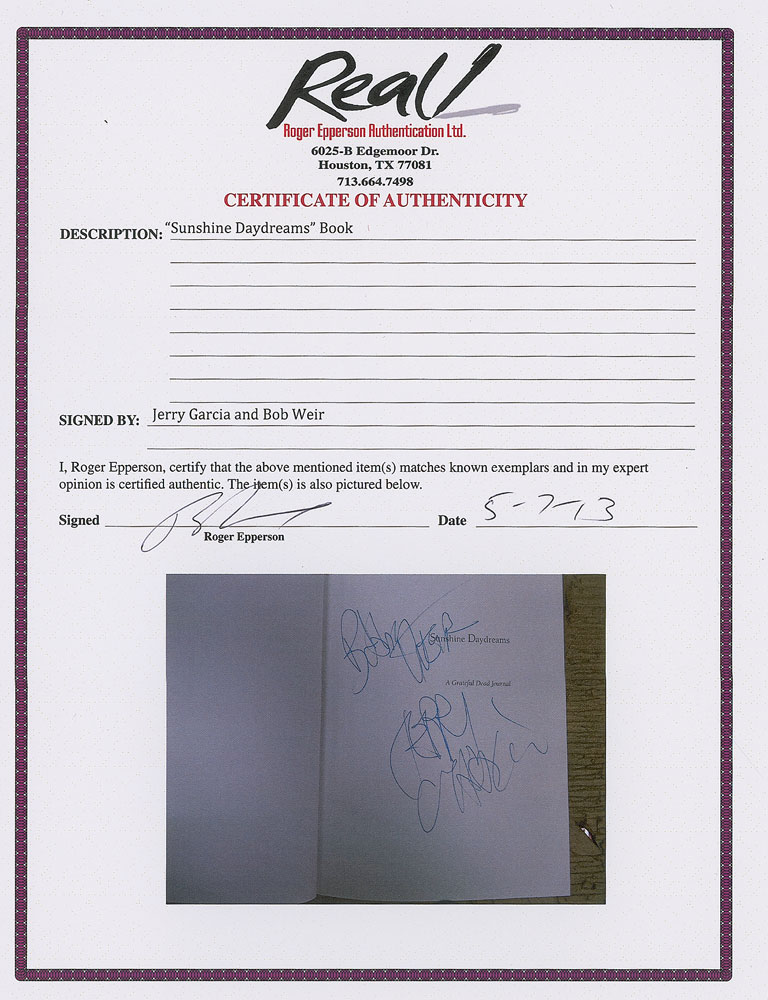 Real!
Roger Epperson Authentication Ltd.
6025-B Edgemoor Dr.
Houston, TX 77081
713.664.7498
CERTIFICATE OF AUTHENTICITY
DESCRIPTION: "Sunshine Daydreams" Book
SIGNED BY: Jerry Garcia and Bob Weir
I, Roger Epperson, certify that the above mentioned item(s) matches known exemplars and in my expert
opinion is certified authentic. The item(s) is also pictured below.
Signed Date 5-7-13
Roger Epperson
Bobby Weir
Sunshine Daydreams
A Grateful Dead Journal